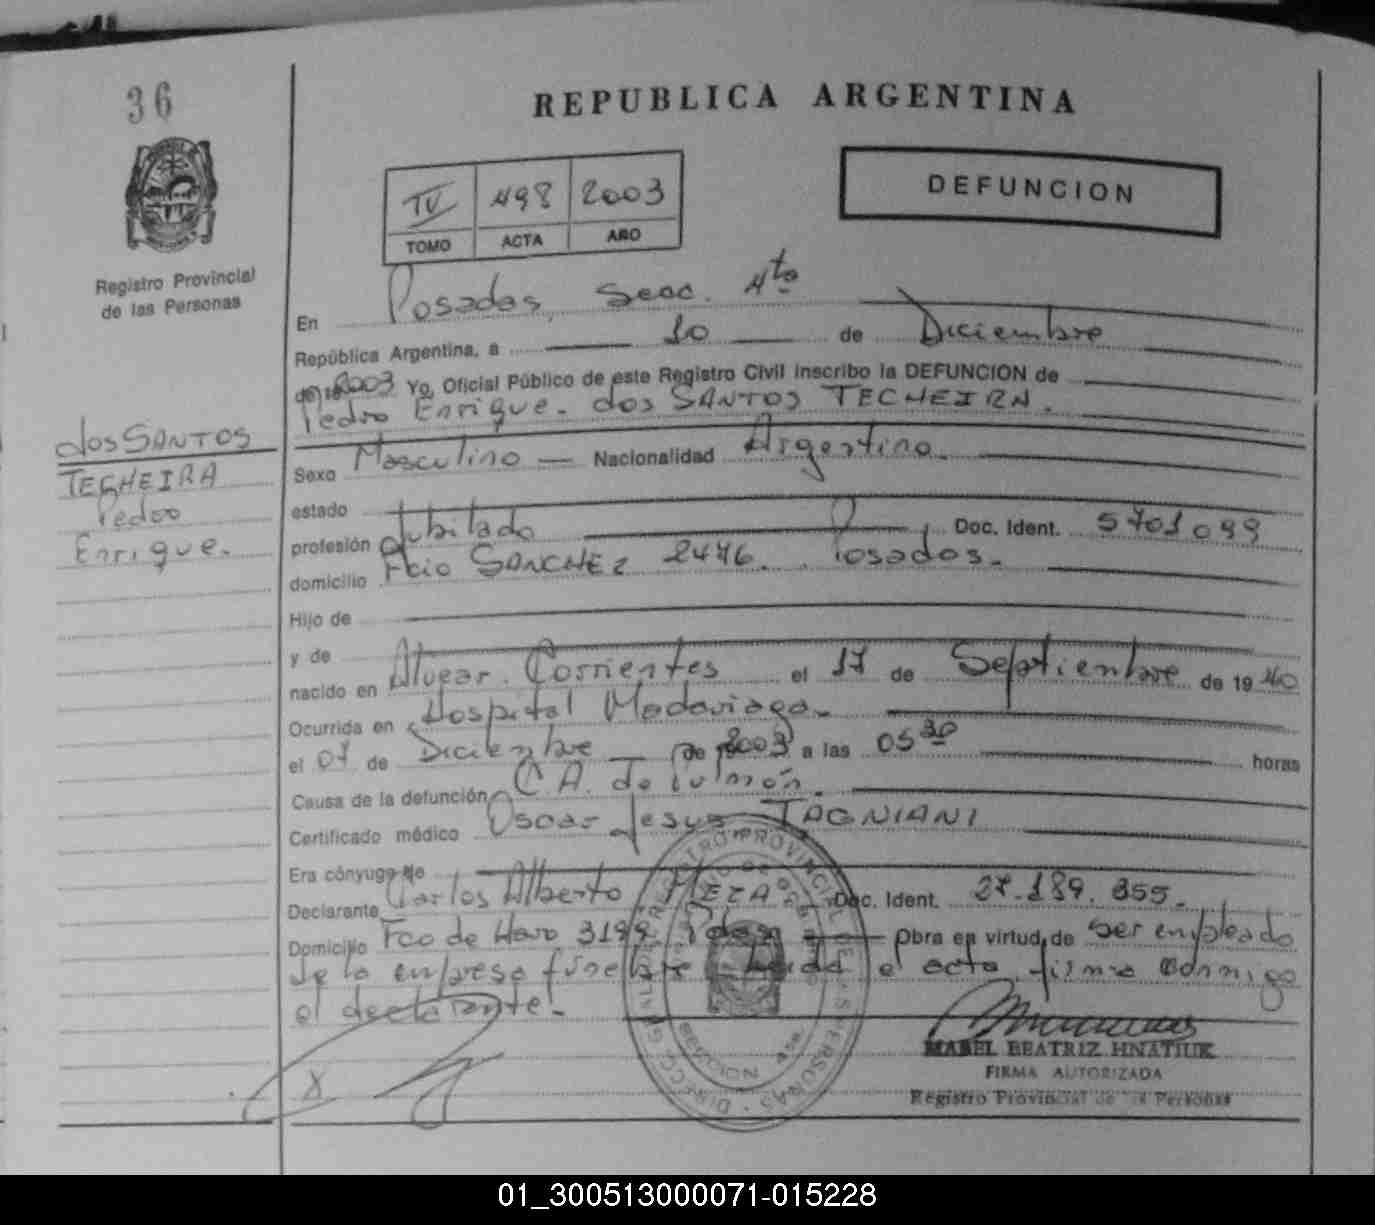 36
REPUBLICA ARGENTINA
IV 498 2003
TOMO ACTA AÑO
DEFUNCION
Registro Provincial
de las Personas
En Posadas, Secc. 4ta
República Argentina, a 10 de Diciembre
de 2003 Yo, Oficial Público de este Registro Civil inscribo la DEFUNCION de
Pedro Enrique. dos SANTOS TECHEIRA.
dos SANTOS
TECHEIRA
Pedro
Enrique.
Sexo Masculino — Nacionalidad Argentina.
estado
profesión Jubilado Doc. Ident. 5701099
domicilio Fcio SANCHEZ 2476. Posadas.
Hijo de
y de
nacido en Alvear. Corrientes el 17 de Septiembre de 1940
Ocurrida en Hospital Madariaga.
el 07 de Diciembre de 2003 a las 05 30 horas
Causa de la defunción C.A. de Pulmón.
Certificado médico Oscar Jesus TAGNIANI
Era cónyuge de
Declarante Carlos Alberto MEZA Doc. Ident. 27.189.355.
Domicilio Fco de Haro 3199 Pdas Obra en virtud de ser empleado
de la empresa fúnebre el acta, firma conmigo
el declarante.
X
MABEL BEATRIZ HNATIUK
FIRMA AUTORIZADA
Registro Provincial de las Personas
01_300513000071-015228